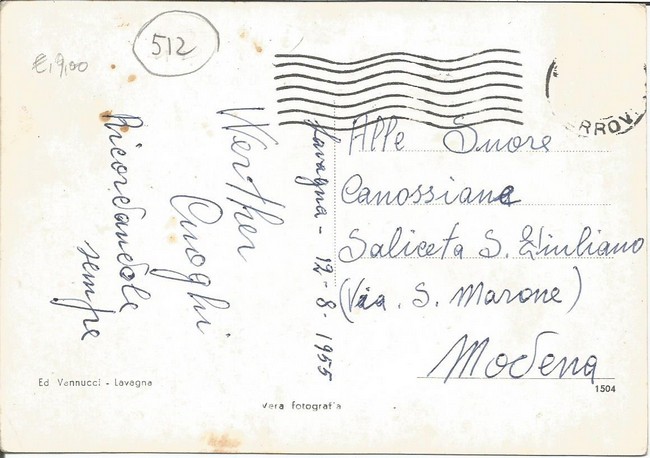 €. 9,00
512
RROV
Ricordandole
sempre
Werther
Cuoghi
Lavagna - 12-8-1955
Alle Suore
Canossiane
Saliceta S. Giuliano
(Via. S. Marone)
Modena
Ed Vannucci - Lavagna
vera fotografia
1504